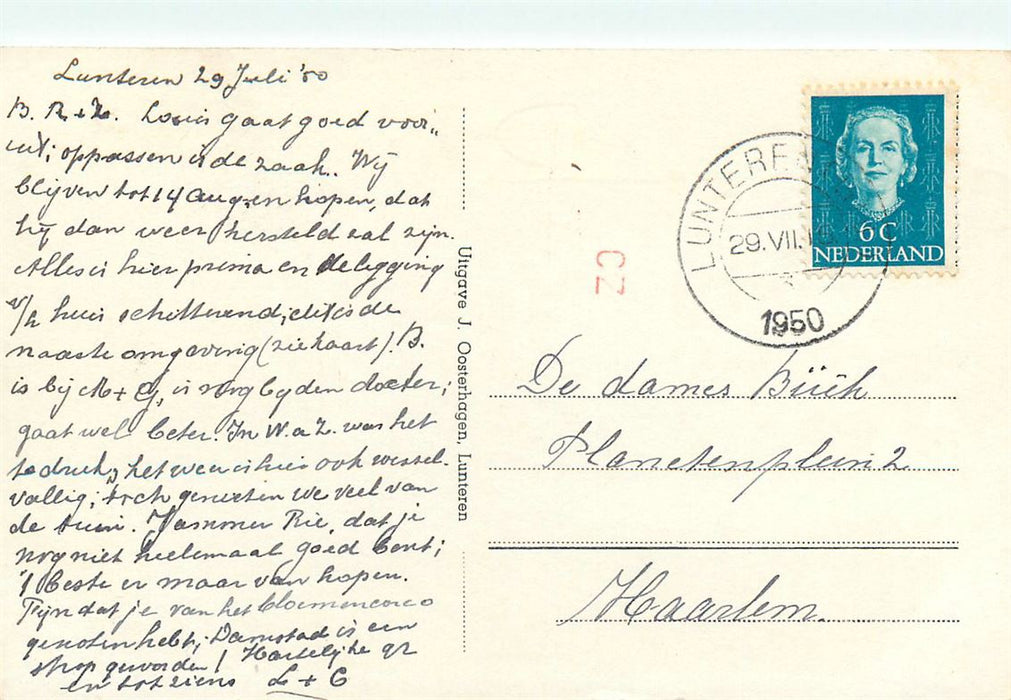 Lunteren 29 Juli '50
B. R. + Z. Louis gaat goed voor„
uit; oppassen is de zaak. Wij
blijven tot 14 Aug. en hopen, dat
hij dan weer hersteld zal zijn.
Alles is hier prima en de ligging
v/h huis schitterend; dit is de
naaste omgeving (zie kaart). B.
is bij M + G, is nog bij den dokter;
gaat wel beter. In W. a Z. was het
te druk, het weer is hier ook wissel-
vallig; toch genieten we veel van
de tuin. Jammer Rie, dat je
nog niet heelemaal goed bent;
't beste er maar van hopen.
Fijn dat je van het bloemencorso
genoten hebt; Damstad is een
strop geworden! Hartelijke gr
en tot ziens L + C
Uitgave J. Oosterhagen, Lunteren
CZ
LUNTEREN
29.VII.
1950
6 C
NEDERLAND
De dames Büch
Planetenplein 2
Haarlem.